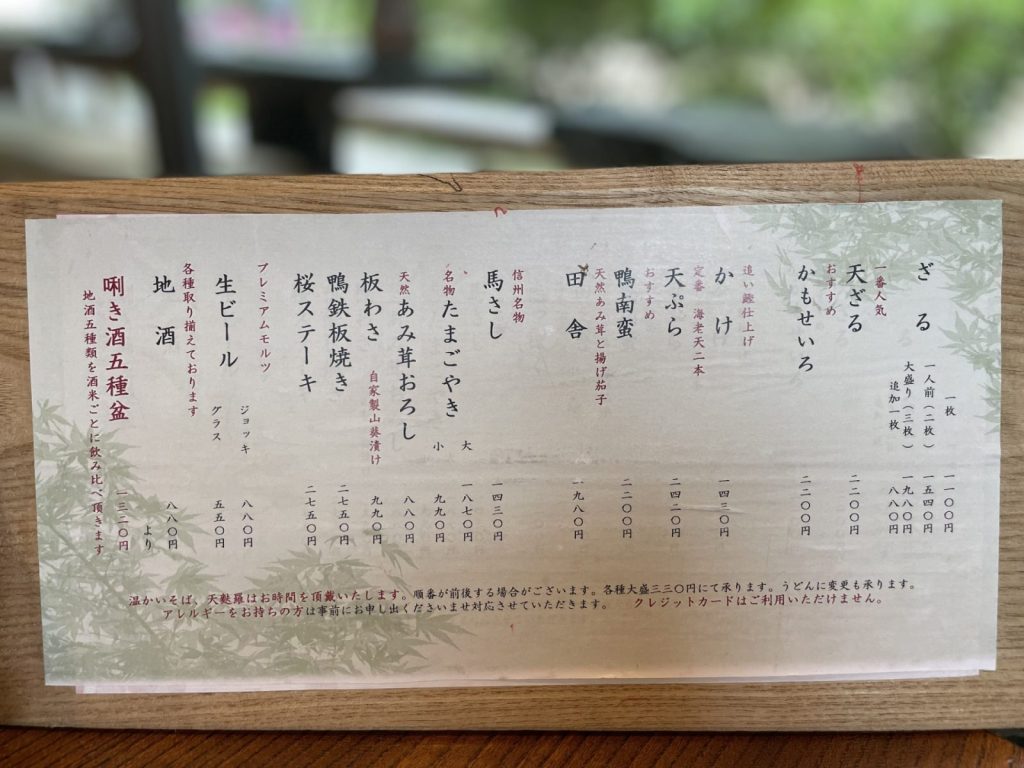 ざる
一枚 一一〇〇円
一人前（二枚） 一五四〇円
大盛り（三枚） 一九八〇円
追加一枚 八八〇円
一番人気
天ざる 二二〇〇円
おすすめ
かもせいろ 二二〇〇円
追い鰹仕上げ
かけ 一四三〇円
定番 海老天二本
天ぷら 二四二〇円
おすすめ
鴨南蛮 二二〇〇円
天然あみ茸と揚げ茄子
田舎 一九八〇円
信州名物
馬さし 一四三〇円
名物 たまごやき
大 一八七〇円
小 九九〇円
天然 あみ茸おろし 八八〇円
自家製山葵漬け
板わさ 九九〇円
鴨鉄板焼き 二七五〇円
桜ステーキ 二七五〇円
プレミアムモルツ
生ビール
ジョッキ 八八〇円
グラス 五五〇円
各種取り揃えております
地酒 八八〇円 より
唎き酒五種盆 一三二〇円
地酒五種類を酒米ごとに飲み比べ頂きます
温かいそば、天麩羅はお時間を頂戴いたします。順番が前後する場合がございます。各種大盛三三〇円にて承ります。うどんに変更も承ります。
アレルギーをお持ちの方は事前にお申し出くださいませ対応させていただきます。 クレジットカードはご利用いただけません。